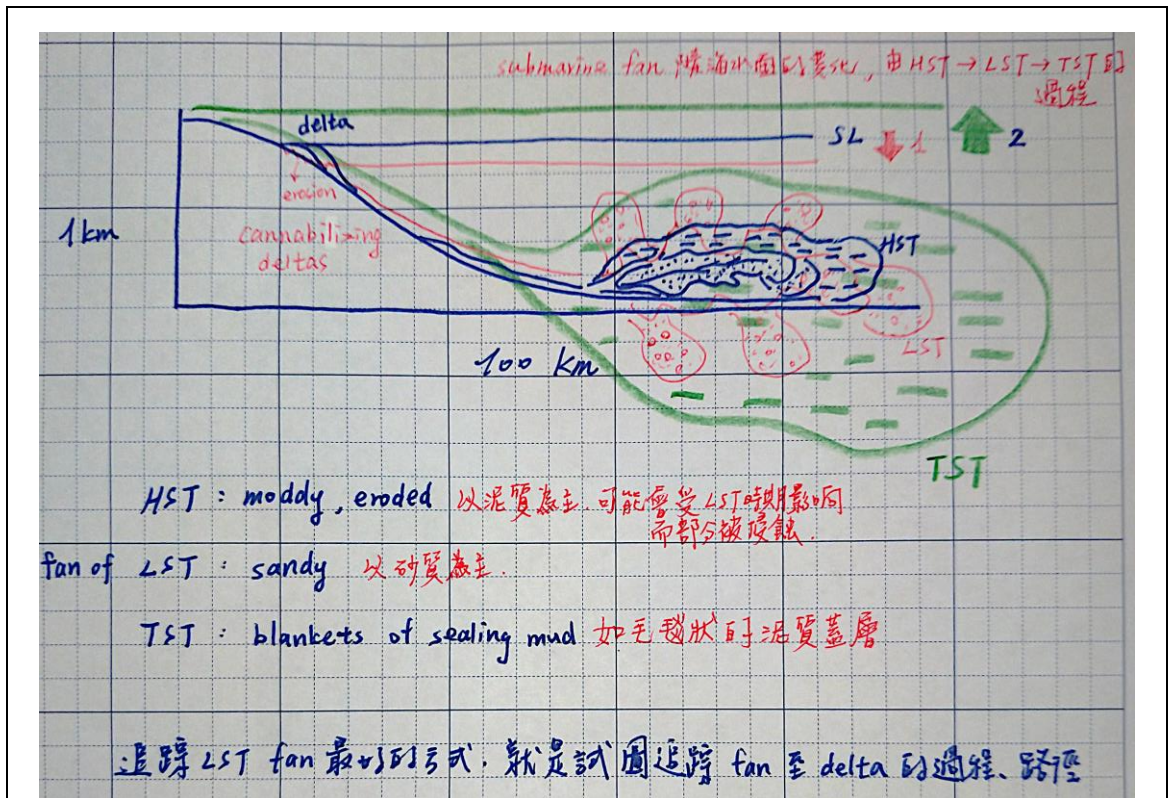 submarine fan 隨海水面的變化, 由 HST → LST → TST 的
過程
delta
SL
1
2
erosion
1 km
cannabilizing
deltas
HST
LST
100 km
TST
HST : moddy, eroded 以泥質為主. 可能會受LST時期影响
而部分被侵蝕.
fan of LST : sandy 以砂質為主.
TST : blankets of sealing mud 如毛毯狀的泥質蓋層
追踪 LST fan 最好的方式. 就是試圖追踪 fan 至 delta 的過程、路徑